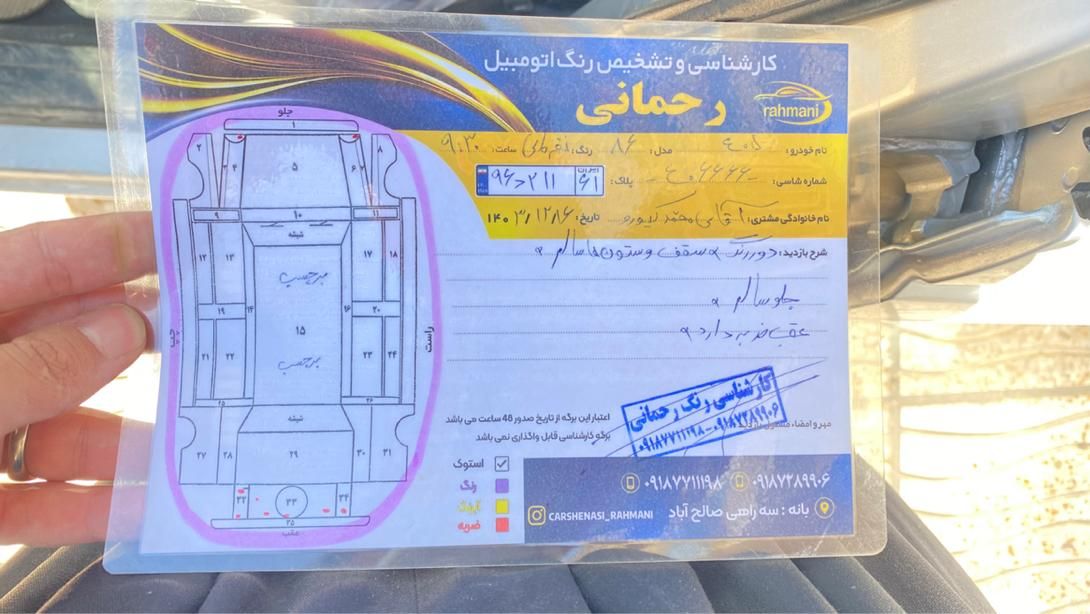 کارشناسی و تشخیص رنگ اتومبیل
رحمانی
rahmani
نام خودرو: ۴۰۵ مدل: ۸۶ رنگ: نقره‌ای ساعت: ۹:۳۰
شماره شاسی: پلاک: ایران ۶۱ ۲۱۱ ۹۶
نام خانوادگی مشتری: آقای محمد تاریخ: ۱۴۰۳/۱۲/۱۶
شرح بازدید: دور رنگ سقف و ستون‌ها سالم
جلو سالم
عقب ضربه دارد
جلو
۱
۲ ۴ ۵ ۶ ۸
۹ ۱۰ ۱۱
شیشه
۱۲ ۱۳ برچسب ۱۷ ۱۸
۱۹ ۱۴ ۱۶ ۲۰
چپ ۱۵ راست
۲۱ ۲۲ برچسب ۲۳ ۲۴
۲۵ ۲۶
شیشه
۲۷ ۲۸ ۲۹ ۳۰ ۳۱
۳۲ ۳۳ ۳۴
۳۵
عقب
اعتبار این برگه از تاریخ صدور 48 ساعت می باشد
برگه کارشناسی قابل واگذاری نمی باشد
مهر و امضاء مسئول
کارشناسی رنگ رحمانی
۰۹۱۸۷۷۱۱۱۹۸-۰۹۱۸۷۲۸۹۹۰۶
استوک
رنگ
ضربه
۰۹۱۸۷۷۱۱۱۹۸ ۰۹۱۸۷۲۸۹۹۰۶
CARSHENASI_RAHMANI بانه : سه راهی صالح آباد